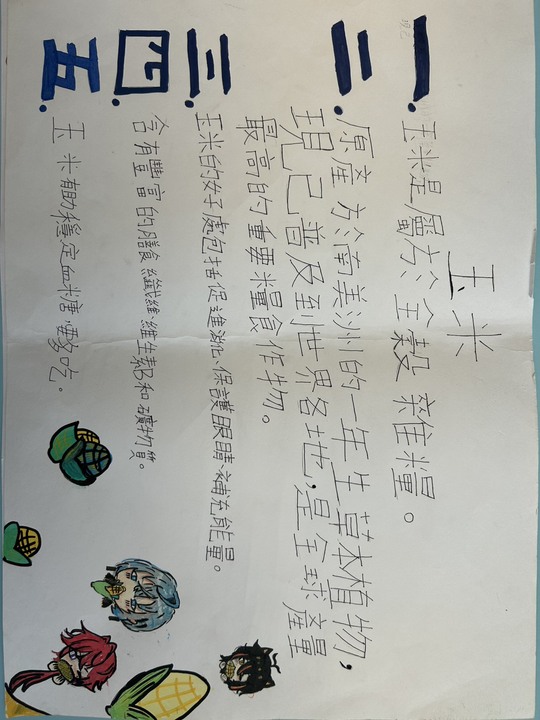 玉米
一.玉米是屬於全穀雜糧。
二.原產於南美洲的一年生草本植物,
現已普及到世界各地,是全球產量
最高的重要糧食作物。
三.玉米的好處包括促進消化、保護眼睛、補充能量。
四.含有豐富的膳食纖維、維生素和礦物質。
五.玉米有助穩定血糖,要多吃。